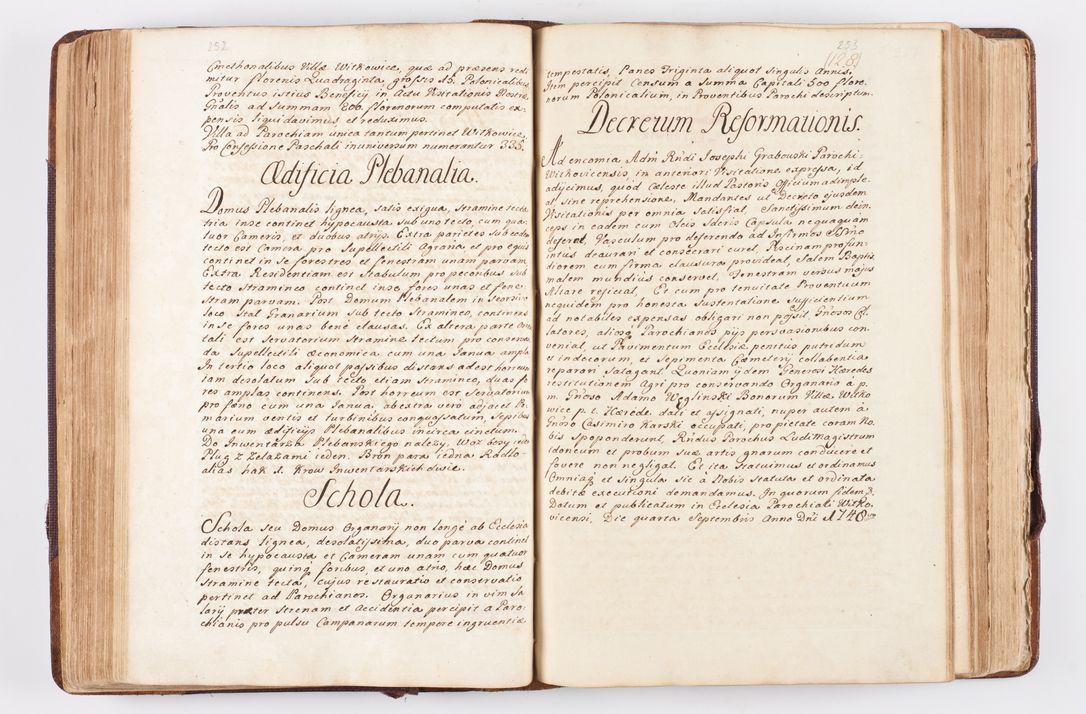 252
Cmethonalibus Villæ Witkowice, quæ ad præsens redi
mitur florenis Quadraginta, grossis 15. Polonicalibus
Proventus istius Beneficij in Actu Visitationis Nostræ
Gnãlis ad Summam 200 florenorum computatis ex-
pensis liquidavimus et reduximus.
Villa ad Parochiam unica tantum pertinet Witkowice,
Pro Confessione Paschali in universum numerantur 335.
Ædificia Plebanalia.
Domus Plebanalis lignea, satis exigua, stramine tecta
tria in se continet hypocausta sub uno tecto, cum qua-
tuor Cameris, et duobus atrijs. Extra parietes sub eodem
tecto est Camera pro Supellectili Agraria et pro equis
continet in se fores tres et fenestram unam parvam.
Extra Residentiam est Stabulum pro pecoribus sub
tecto stramineo continet in se fores unas et fene-
stram parvam. Post Domum Plebanalem in Seorsivo
loco stat Granarium sub tecto stramineo, continens
in se fores unas bene clausas. Ex altera parte
tali est servatorium stramine tectum pro conservan
da Supellectili œconomica, cum una Janua ampla
In tertio loco aliquot passibus distans adest horreum
iam desolatum sub tecto etiam stramineo, duas fo
res amplas continens. Post horreum est servatorium
pro fæno cum una Janua, ab extra vero adjacet
narium ventis et turbinibus conquassatum, Sepibus
una cum ædificijs Plebanalibus in circa cinctum.
Do Inwentarza Plebanskiego nalezy, Woz bosy ieden
Plug z Zelazami ieden. Bron para iedna Radło
alias hak 1. Krow Inwentarskich dwie.
Schola.
Schola seu Domus Organarij non longè ab Ecclesia
distans lignea, desolatissima, duo parva continet
in se hypocausta et Cameram unam cum quatuor
fenestris, quinq foribus, et uno atrio, hæc Domus
stramine tecta, cujus restauratio et conservatio
pertinet ad Parochianos. Organarius in vim Sa
larij præter Strenam et Accidentia percipit a Paro-
chianis pro pulsu Campanarum tempore ingruentis
253
128
tempestatis, Panes Triginta aliquot Singulis Annis,
Item percipit Censum a Summa Capitali 500 flore-
norum Polonicalium, in Proventibus Parochi descriptum.
Decretum Reformationis.
Ad encomia Adm Rndi Josephi Grabowski Parochi-
Witkovicensis, in anteriori Visitatione expressa, id
adijcimus, quod cæleste illud Pastoris Officium adimple-
at sine reprehensione, Mandantes ut Decreto ejusdem
Visitationis per omnia satisfiat. Sanctissimum dein-
ceps in eadem cum Oleis Sacris Capsula nequaquam
deferat, Vasculum pro deferendo ad Infirmos
intus deaurari et consecrari curet. Piscinam profun-
diorem cum firma clausura provideat, Salem Baptis-
malem mundius conservet. Fenestram versus majus
Altare reficiat. Et cum pro tenuitate Proventuum
nequidem pro honesta Sustentatione Sufficientium
ad notabiles expensas obligari non possit, Gnosos Col-
latores, aliosq Parochianos pijs persuasionibus con-
veniat, ut Pavimentum Ecclesiæ penitus putridum
et indecorum, et Sepimenta Cæmeterij collabentia
reparari satagant. Quoniam ijdem Generosi Hæredes
restitutionem Agri pro conservando Organario à p.
m. Gnoso Adamo Węglinski Bonorum Villæ Witko
wice p. t. Hærede dati et assignati, nuper autem à
Gnoso Casimiro Karski occupati, pro pietate coram No-
bis spoponderunt, Rndus Parochus Ludi Magistrum
idoneum et probum suæ artis gnarum conducere et
fovere non negligat. Et ita Statuimus et ordinamus
Omniaq et singula sic à Nobis statuta et ordinata
debitæ executioni demandamus. In quorum fidem
Datum et publicatum in Ecclesia Parochiali Witko-
vicensi, Die quarta Septembris Anno Dni 1748